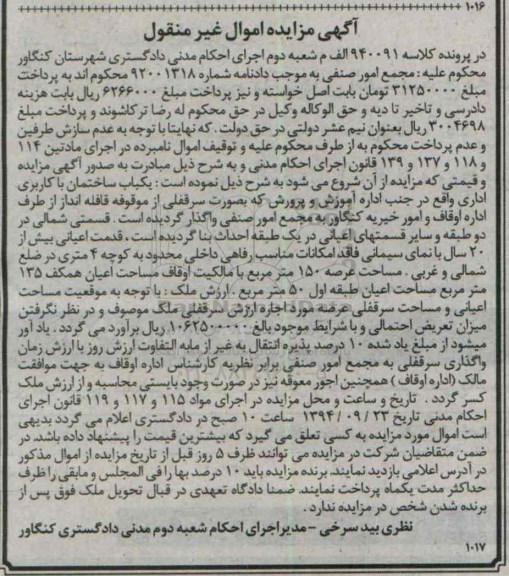 ۱۰۱۶
آگهی مزایده اموال غیر منقول
در پرونده کلاسه ۹۴۰۰۹۱ الف م شعبه دوم اجرای احکام مدنی دادگستری شهرستان کنگاور
محکوم علیه : مجمع امور صنفی به موجب دادنامه شماره ۹۲۰۰۱۳۱۸ محکوم اند به پرداخت
مبلغ ۳۱۲۵۰۰۰۰ تومان بابت اصل خواسته و نیز پرداخت مبلغ ۶۲۶۶۰۰۰ ریال بابت هزینه
دادرسی و تاخیر تا دیه و حق الوکاله وکیل در حق محکوم له رضا ترکاشوند و پرداخت مبلغ
۳۰۰۴۶۹۸ ریال بعنوان نیم عشر دولتی در حق دولت . که نهایتا با توجه به عدم سازش طرفین
و عدم پرداخت محکوم به از طرف محکوم علیه و توقیف اموال نامبرده در اجرای مادتین ۱۱۴
و ۱۱۸ و ۱۳۷ و ۱۳۹ قانون اجرای احکام مدنی و به شرح ذیل مبادرت به صدور آگهی مزایده
و قیمتی که مزایده از آن شروع می شود به شرح ذیل نموده است : یکباب ساختمان با کاربری
اداری واقع در جنب اداره آموزش و پرورش که بصورت سرقفلی از موقوفه قافله انداز از طرف
اداره اوقاف و امور خیریه کنگاور به مجمع امور صنفی واگذار گردیده است . قسمتی شمالی در
دو طبقه و سایر قسمتهای اعیانی در یک طبقه احداث بنا گردیده است . قدمت اعیانی بیش از
۲۰ سال با نمای سیمانی فاقد امکانات مناسب رفاهی داخلی محدود به کوچه ۴ متری در ضلع
شمالی و غربی . مساحت عرصه ۱۵۰ متر مربع با مالکیت اوقاف مساحت اعیان همکف ۱۳۵
متر مربع مساحت اعیان طبقه اول ۵۰ متر مربع . ارزش ملک : با توجه به موقعیت مساحت
اعیانی و مساحت سرقفلی عرصه مورد اجاره ارزش سرقفلی ملک موصوف و در نظر نگرفتن
میزان تعریض احتمالی و با شرایط موجود بالغ ۱۰۶۲۵۰۰۰۰۰ ریال برآورد می گردد . یاد آور
میشود از مبلغ یاد شده ۱۰ درصد پذیره انتقال به غیر از مابه التفاوت ارزش روز با ارزش زمان
واگذاری سرقفلی به مجمع امور صنفی برابر نظریه کارشناس اداره اوقاف به جهت موافقت
مالک (اداره اوقاف) همچنین اجور معوقه نیز در صورت وجود بایستی محاسبه و از ارزش ملک
کسر گردد . تاریخ و ساعت و محل مزایده در اجرای مواد ۱۱۵ و ۱۱۷ و ۱۱۹ قانون اجرای
احکام مدنی تاریخ ۲۳ / ۰۹ / ۱۳۹۴ ساعت ۱۰ صبح در دادگستری اعلام می گردد بدیهی
است اموال مورد مزایده به کسی تعلق می گیرد که بیشترین قیمت را پیشنهاد داده باشد. در
ضمن متقاضیان شرکت در مزایده می توانند ظرف ۵ روز قبل از تاریخ مزایده از اموال مذکور
در آدرس اعلامی بازدید نمایند. برنده مزایده باید ۱۰ درصد بها را فی المجلس و مابقی را ظرف
حداکثر مدت یکماه پرداخت نمایند. ضمنا دادگاه تعهدی در قبال تحویل ملک فوق پس از
برنده شدن شخص در مزایده ندارد .
نظری بید سرخی - مدیر اجرای احکام شعبه دوم مدنی دادگستری کنگاور
۱۰۱۷